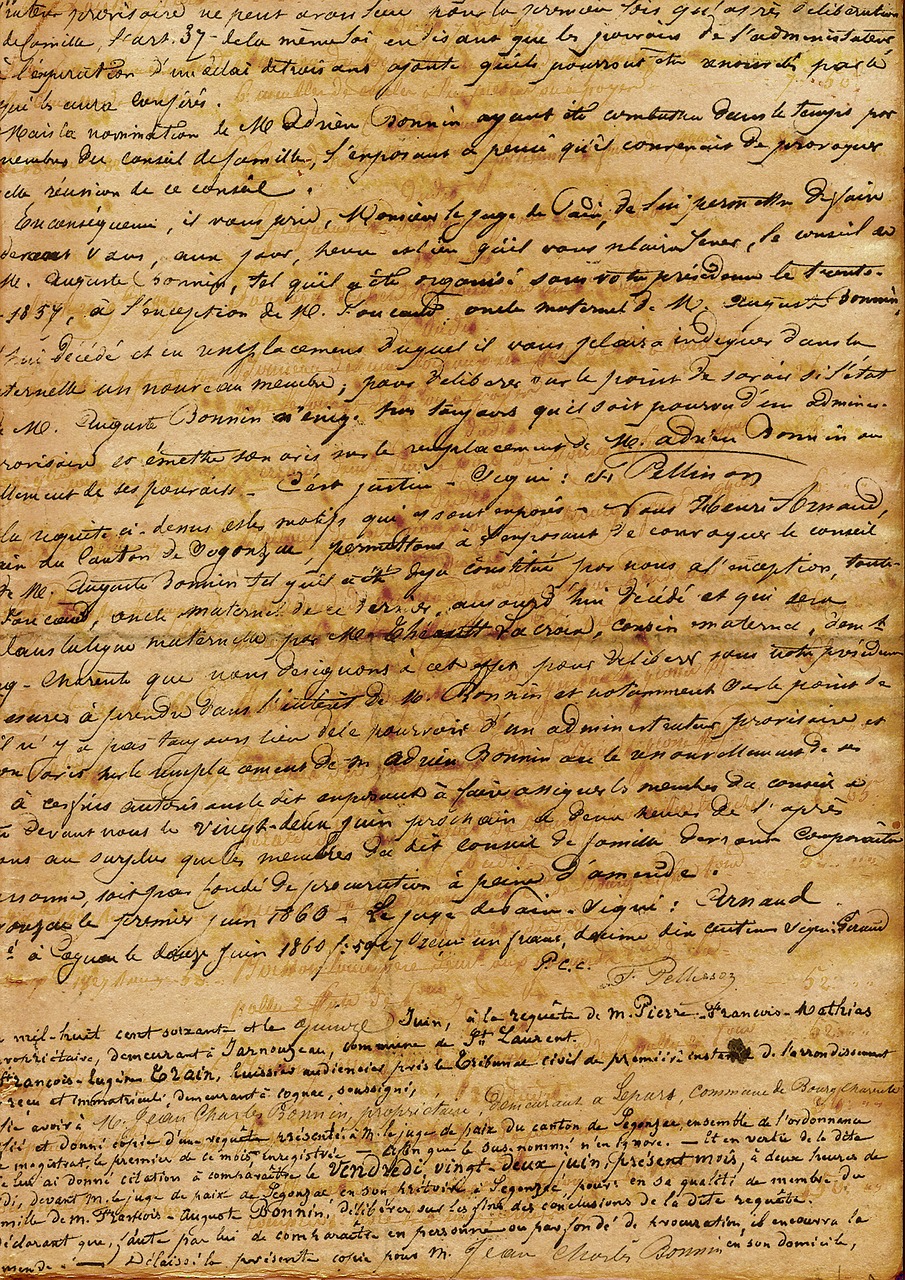 provisoire ne peut avoir lieu pour la première fois qu'après délibération
de famille, l'art. 37 de la même loi en disant que les pouvoirs de l'administrateur
à l'expiration d'un délai de trois ans ajoute qu'ils pourront être renouvelés par le
qui les aura conférés.
Mais la nomination de M Adrien Bonnin ayant été combattue dans le temps par
membres du conseil de famille, l'exposant a pensé qu'il convenait de provoquer
elle réunion de ce conseil.
En conséquence, il vous prie, Monsieur le juge de Paix, de lui permettre de faire
devant vous, aux jour, heure et lieu qu'il vous plaira fixer, le conseil de
M. Auguste Bonnin, tel qu'il a été organisé sous votre présidence le trente-
1857, à l'exception de M. Foucaud, oncle maternel de M. Auguste Bonnin,
hui décédé et en remplacement duquel il vous plaira indiquer dans la
ternelle un nouveau membre; pour délibérer sur le point de savoir si l'état
M. Auguste Bonnin n'exige pas toujours qu'il soit pourvu d'un adminis-
rovisoire et émettre son avis sur le remplacement de M. Adrien Bonnin ou
llement de ses pouvoirs - C'est justice - Signé: F. Pellisson
la requête ci-dessus et les motifs qui y sont exposés - Nous Henri Arnaud,
aix du Canton de Segonzac, permettons à l'exposant de convoquer le conseil
de M. Auguste Bonnin tel qu'il a été déjà constitué par nous à l'exception, toute-
Foucaud, oncle maternel de ce dernier, aujourd'hui décédé et qui sera
dans la ligne maternelle par M. Lacroix, cousin maternel, dem.t
g-Charente que nous désignons à cet effet pour délibérer sous notre présidence
esures à prendre dans l'intérêt de M. Bonnin et notamment sur le point de
il n'y a pas toujours lieu de le pourvoir d'un administrateur provisoire et
on avis sur le remplacement de M Adrien Bonnin ou le renouvellement de ses
à ces fins autorisons le dit exposant à faire assigner les membres du conseil à
devant nous le vingt-deux juin prochain à deux heures de l'après
ons au surplus que les membres du dit conseil de famille devront comparaître
ersonne, soit par fondé de procuration à peine d'amende.
onzac le premier juin 1860 - Le juge de paix - Signé: Arnaud
é à Cognac le douze juin 1860 Reçu un franc, décime dix centimes Signé: Giraud
P.c.c.
F. Pellisson
mil-huit cent soixante et le quinze Juin, à la requête de M. Pierre-François-Mathias
propriétaire, demeurant à Jarnouzeau, commune de St Laurent.
François-Eugène Train, huissier audiencier près le Tribunal civil de première instance de l'arrondissement
reçu et immatriculé demeurant à Cognac, soussigné,
fié avoir à M. Jean Charles Bonnin, propriétaire, demeurant à Lepart, commune de Bourg Charente
fié et donné copie d'une requête présentée à M. le juge de paix du canton de Segonzac, ensemble de l'ordonnance
e magistrat, le premier de ce mois enregistrée - afin que le sus-nommé n'en ignore. - Et en vertu de la dite
e lui ai donné citation à comparaître le vendredi vingt-deux juin, présent mois, à deux heures de
di, devant M. le juge de paix de Segonzac, en son prétoire à Segonzac, pour, en sa qualité de membre du
mille de M. François-Auguste Bonnin, délibérer sur les fins des conclusions de la dite requête.
déclarant que, faute par lui de comparaître en personne ou par fondé de procuration, il encourra la
mende. - Délaissé la présente copie pour M. Jean Charles Bonnin en son domicile,